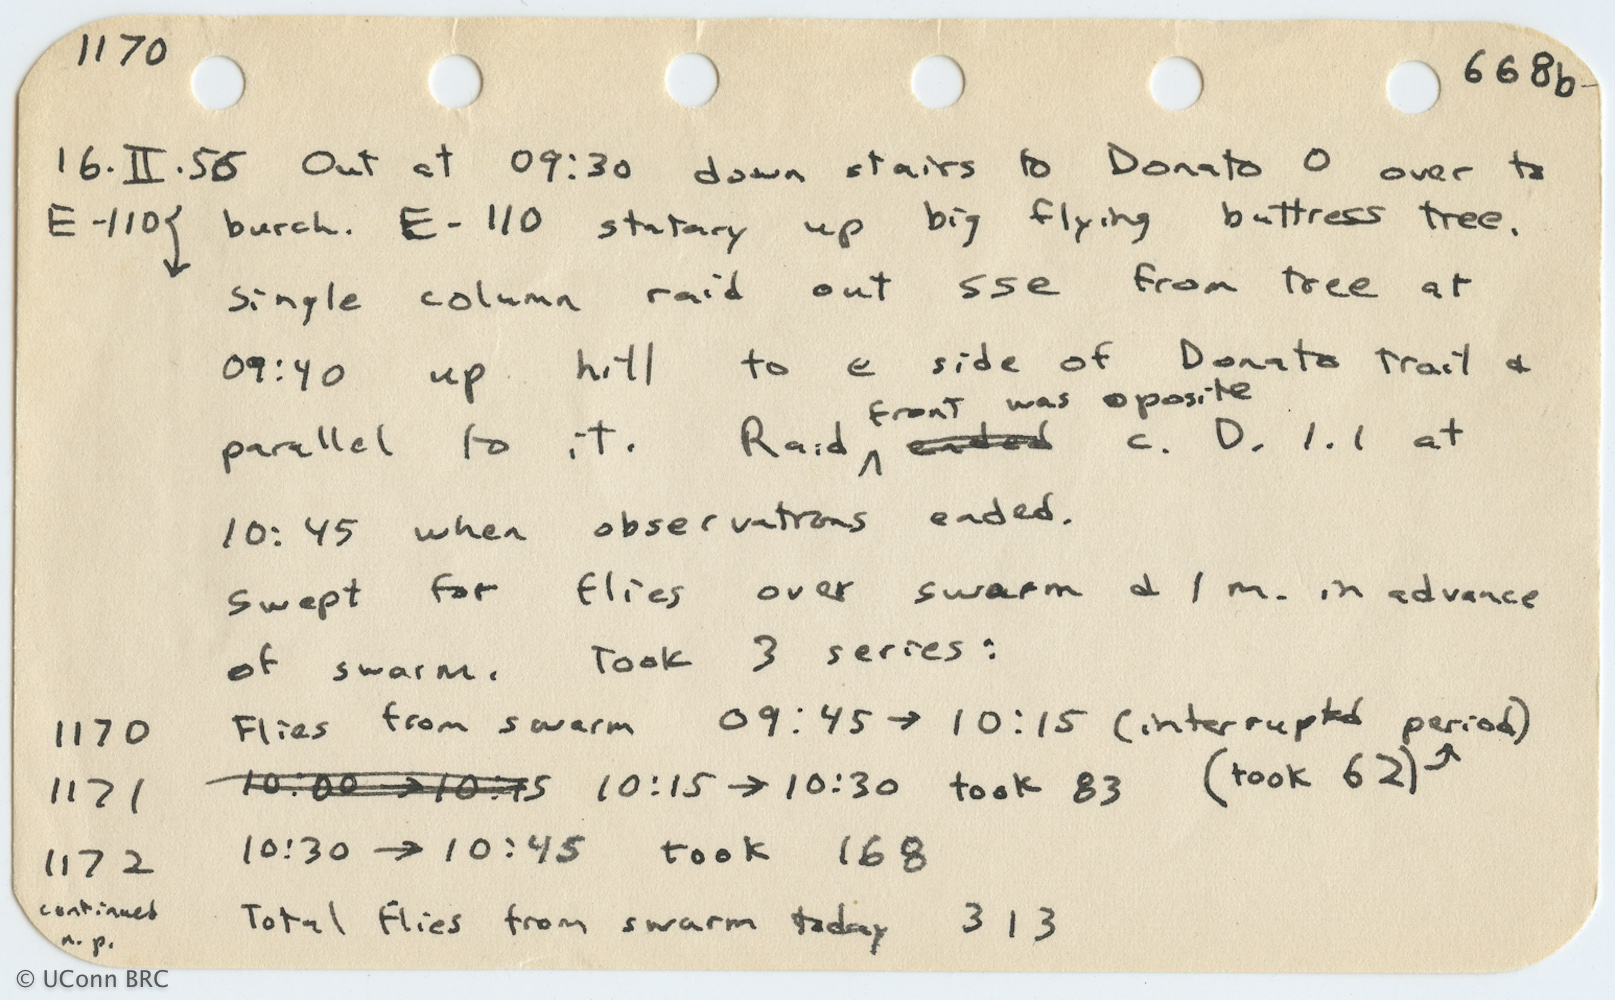 1170
668b
16.II.56 Out at 09:30 down stairs to Donato 0 over to
E-110 burch. E-110 statary up big flying buttress tree.
single column raid out SSE from tree at
09:40 up hill to E side of Donato trail &
parallel to it. Raid front was oposite ended c. D. 1.1 at
10:45 when observations ended.
Swept for flies over swarm & 1 m. in advance
of swarm. Took 3 series:
1170 Flies from swarm 09:45 → 10:15 (interrupted period)
1171 10:00 → 10:15 10:15 → 10:30 took 83 (took 62)
1172 10:30 → 10:45 took 168
continued n.p. Total flies from swarm today 313
© UConn BRC